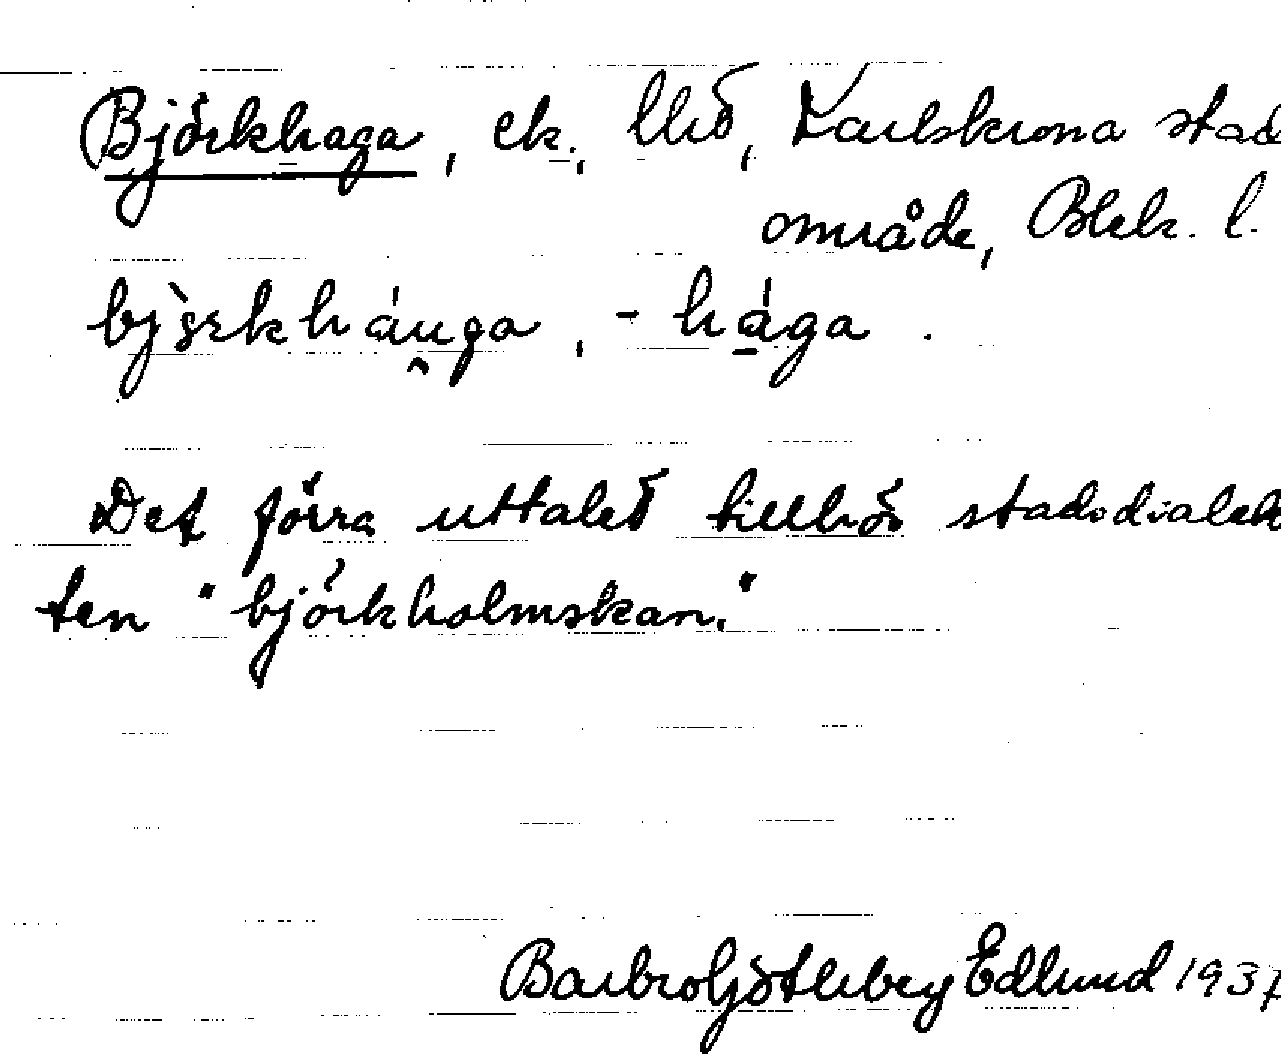 Björkhaga, ek., Karlskrona stad
område, Blek. l.
bjɔ̀rkháu̯ga, -hága.
Det förra uttalet tillhör stadsdialek
ten "björkholmskan."
Barbro Edlund 1937